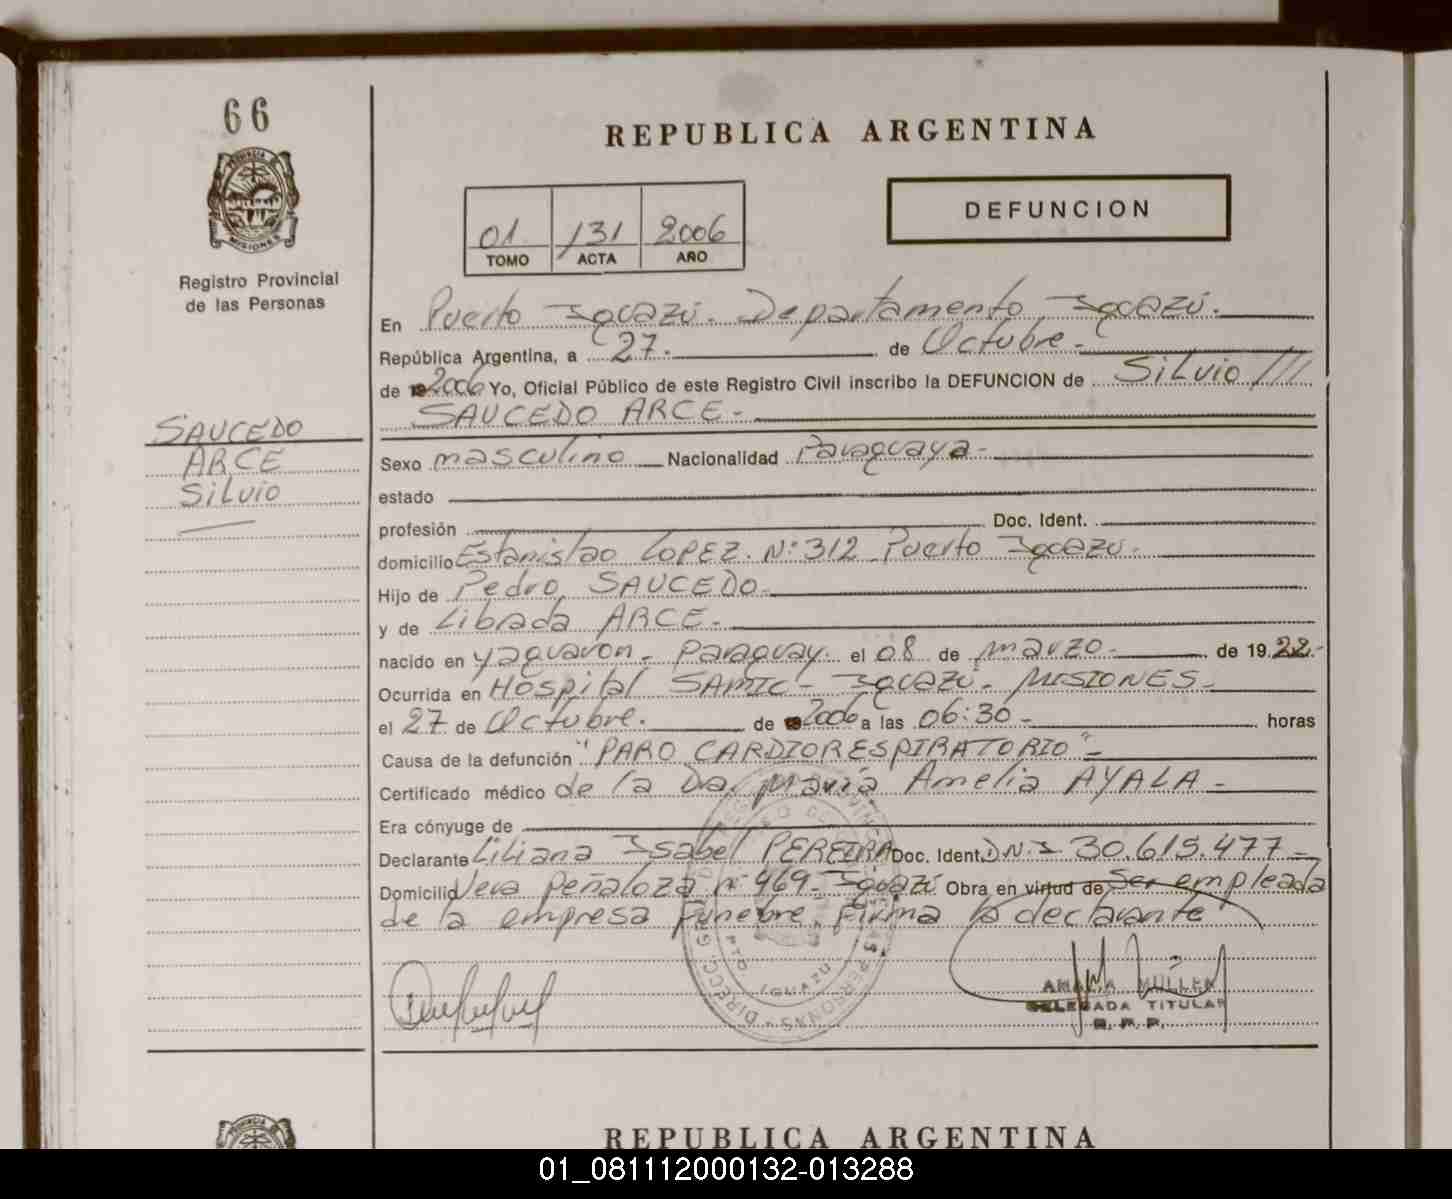 66
PROVINCIA DE
MISIONES
Registro Provincial
de las Personas
SAUCEDO
ARCE
Silvio
REPUBLICA ARGENTINA
01 131 2006
TOMO ACTA AÑO
DEFUNCION
En Puerto Iguazú. Departamento Iguazú.
República Argentina, a 27. de Octubre.-
de 2006 Yo, Oficial Público de este Registro Civil inscribo la DEFUNCION de Silvio ///
SAUCEDO ARCE.-
Sexo masculino Nacionalidad Paraguaya-
estado
profesión Doc. Ident.
domicilio Estanislao LOPEZ. Nº 312 Puerto Iguazú.
Hijo de Pedro SAUCEDO.-
y de Librada ARCE.-
nacido en Yaguaron - Paraguay. el 08 de marzo.- de 19 22.-
Ocurrida en Hospital SAMIC - Iguazú - MISIONES.-
el 27 de Octubre. de 2006 a las 06:30 - horas
Causa de la defunción "PARO CARDIORESPIRATORIO"-
Certificado médico de la Da. María Amelia AYALA -
Era cónyuge de
Declarante Liliana Isabel PEREIRA Doc. Ident. D.N.I 30.615.477-
Domicilio Vera Peñaloza nº 469- Iguazú Obra en virtud de Ser empleada
de la empresa Funebre. Firma la declarante
PTO. IGUAZU
PERSONAS - DIRECC. GRAL.
DELEGADA TITULAR
R. P. P.
REPUBLICA ARGENTINA
01_081112000132-013288